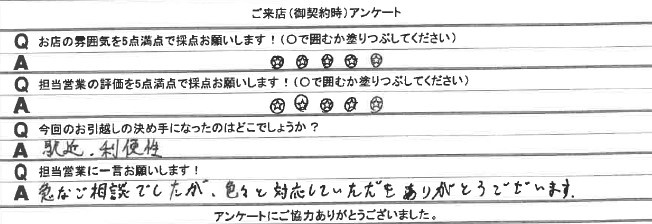 ご来店(御契約時)アンケート
Q お店の雰囲気を5点満点で採点お願いします!(○で囲むか塗りつぶしてください)
A ☆☆☆☆☆
Q 担当営業の評価を5点満点で採点お願いします!(○で囲むか塗りつぶしてください)
A ☆☆☆☆☆
Q 今回のお引越しの決め手になったのはどこでしょうか?
A 駅近、利便性
Q 担当営業に一言お願いします!
A 急なご相談でしたが、色々と対応していただきありがとうございます。
アンケートにご協力ありがとうございました。